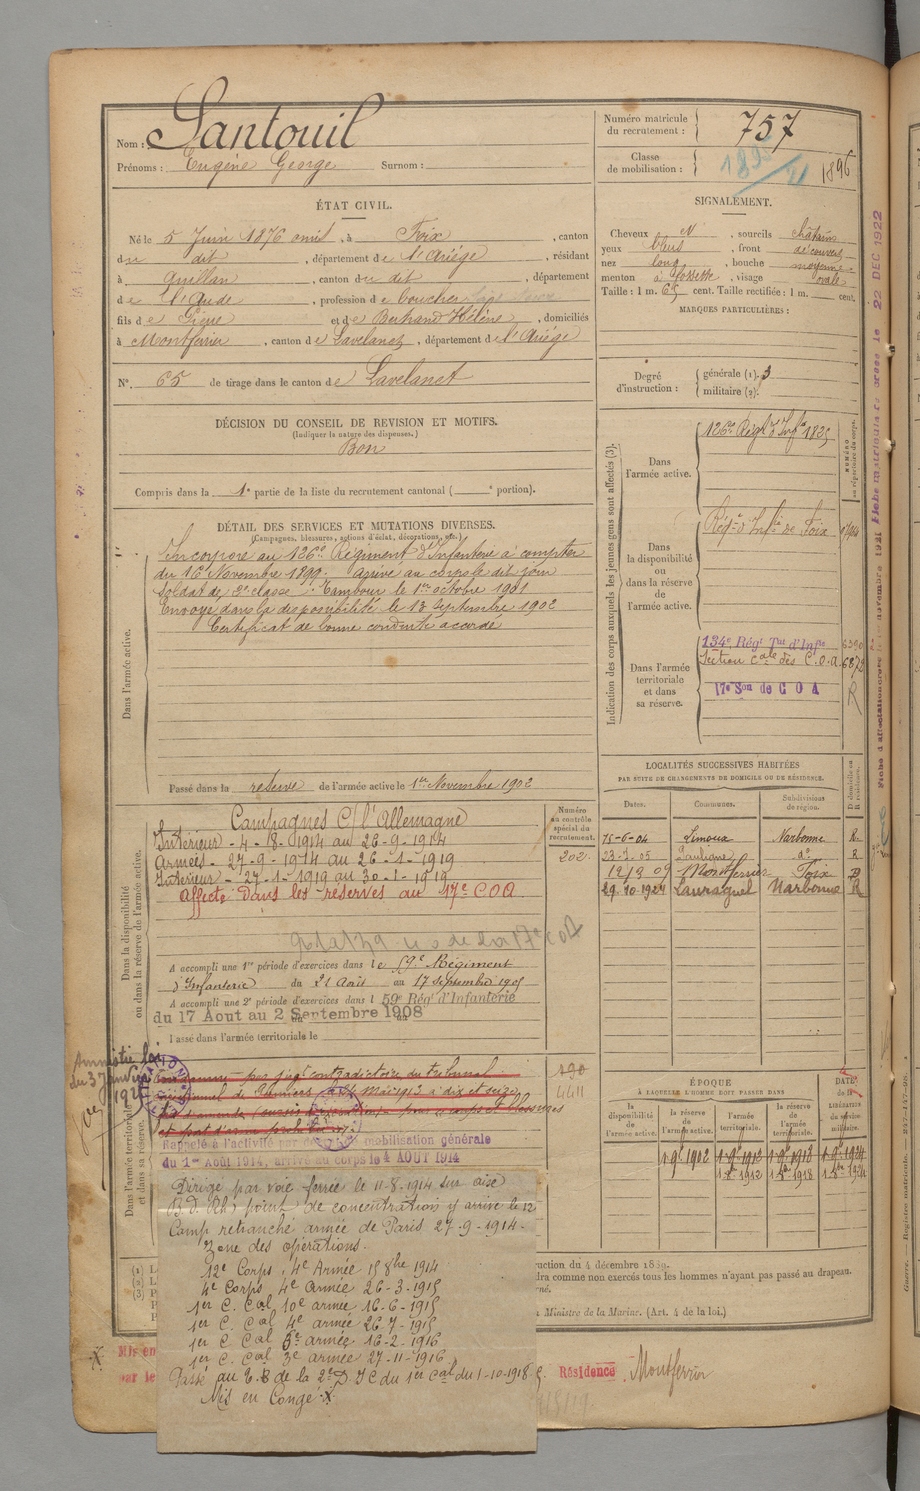 Nom : Santouil
Prénoms : Eugène George Surnom :
Numéro matricule du recrutement : 757
Classe de mobilisation : 1896
ÉTAT CIVIL.
Né le 5 Juin 1876 , à Foix , canton
du dit , département de l'Ariège , résidant
à Quillan , canton du dit , département
de l'Aude , profession de boucher
fils de Pierre et de Bertrand Hélène , domiciliés
à Montferrier , canton de Lavelanet , département de l'Ariège
N° 65 de tirage dans le canton de Lavelanet
SIGNALEMENT.
Cheveux N , sourcils châtains
yeux bleus , front découvert
nez long , bouche moyenne
menton à fossette , visage ovale
Taille : 1 m. 65 cent. Taille rectifiée : 1 m. cent.
MARQUES PARTICULIÈRES :
Degré d'instruction : générale (1). 3
militaire (2).
DÉCISION DU CONSEIL DE REVISION ET MOTIFS.
(Indiquer la nature des dispenses.)
Bon
Compris dans la 1e partie de la liste du recrutement cantonal ( e portion).
DÉTAIL DES SERVICES ET MUTATIONS DIVERSES.
(Campagnes, blessures, actions d'éclat, décorations, etc.)
Dans l'armée active.
Incorporé au 126e Régiment d'Infanterie à compter
du 16 Novembre 1899. Arrivé au corps le dit jour
Soldat de 2e classe. Tambour le 1er octobre 1901
Envoyé dans la disponibilité le 13 Septembre 1902
Certificat de bonne conduite accordé
Passé dans la réserve de l'armée active le 1er Novembre 1902
Indication des corps auxquels les jeunes gens sont affectés (3).
NUMÉRO au répertoire du corps.
Dans l'armée active.
126e Régt d'Infie
Dans la disponibilité ou dans la réserve de l'armée active.
Régt d'Infie de Foix
Dans l'armée territoriale et dans sa réserve.
134e Régt Tal d'Infie 6390
Section cale des C.O.A. 6872
17e Son de C O A R
LOCALITÉS SUCCESSIVES HABITÉES
PAR SUITE DE CHANGEMENTS DE DOMICILE OU DE RÉSIDENCE.
Dates. Communes. Subdivisions de région. D domicile ou R résidence.
15-6-04 Limoux Narbonne R
23-7-05 Pauligne do R
12/9 09 Montferrier Foix D
29.10.1924 Lauraguel Narbonne R
Dans la disponibilité ou dans la réserve de l'armée active.
Numéro au contrôle spécial du recrutement.
202
Campagnes C/ l'Allemagne
Intérieur - 4-8-1914 au 26-9-1914
Armées - 27-9-1914 au 26-1-1919
Intérieur - 27-1-1919 au 30-1-1919
Affecté dans les réserves au 17e COA
A accompli une 1re période d'exercices dans le 59e Régiment
d'Infanterie du 21 Août au 17 Septembre 1905
A accompli une 2e période d'exercices dans l 59e Régt d'Infanterie
du 17 Aout au 2 Septembre 1908
Passé dans l'armée territoriale le
Dans l'armée territoriale et dans sa réserve.
Amnistie loi
du 3 Janvier
1925
Condamné par jugt contradictoire du tribunal
correctionnel de Pamiers du Mai 1913 à dix et seize
190
4411
Rappelé à l'activité mobilisation générale
du 1er Août 1914, arrivé au corps le 4 AOUT 1914
ÉPOQUE
À LAQUELLE L'HOMME DOIT PASSER DANS
la disponibilité de l'armée active. la réserve de l'armée active. l'armée territoriale. la réserve de l'armée territoriale. DATE de la LIBÉRATION du service militaire.
1-9e 1902 1-9e 1912 1-9e 1918 1-9e 1924
1912 1918 1924
Dirigé par voie ferrée le 11-8-1914 sur
B. d. Rh) point de concentration y arrive le 12
Camp retranché armée de Paris 27-9-1914.
Zone des opérations.
12e Corps, 4e Armée 15 8bre 1914
4e Corps 4e Armée 26-3-1915
1er C. Cal 10e armée 16-6-1915
1er C. Cal 4e armée 26-7-1915
1er C Cal 5e armée 16-2-1916
1er C. Cal 3e armée 27-11-1916
Passé au C.B de la 2e D.I.C du 1er Cal du 1-10-1918.
Mis en Congé X
Instruction du 4 décembre 1889.
comme non exercés tous les hommes n'ayant pas passé au drapeau.
Ministre de la Marine. (Art. 4 de la loi.)
X Mis en
par le
Résidence Montferrier
22 DEC 1922